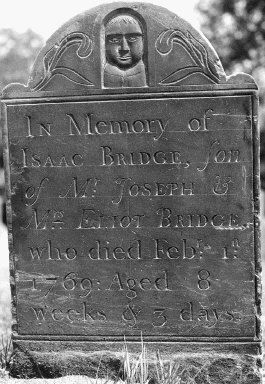 In Memory of
Isaac Bridge, ſon
of Mr Joseph &
Mrs Eliot Bridge,
who died Febry 1st
1769: Aged 8
weeks & 3 days.